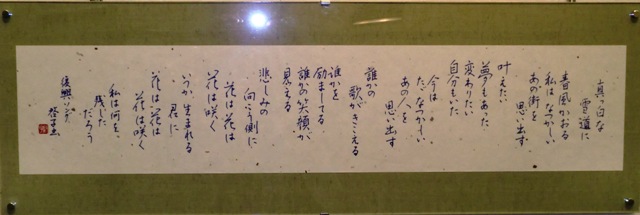 真っ白な
雪道に
春風かおる
私はなつかしい
あの街を
思い出す
叶えたい
夢もあった
変わりたい
自分もいた
今は
ただなつかしい
あの人を
思い出す
誰かの
歌がきこえる
誰かを
励ましてる
誰かの笑顔が
見える
悲しみの
向こう側に
花は花は
花は咲く
いつか生まれる
君に
花は花は
花は咲く
私は何を
残した
だろう
復興ソング